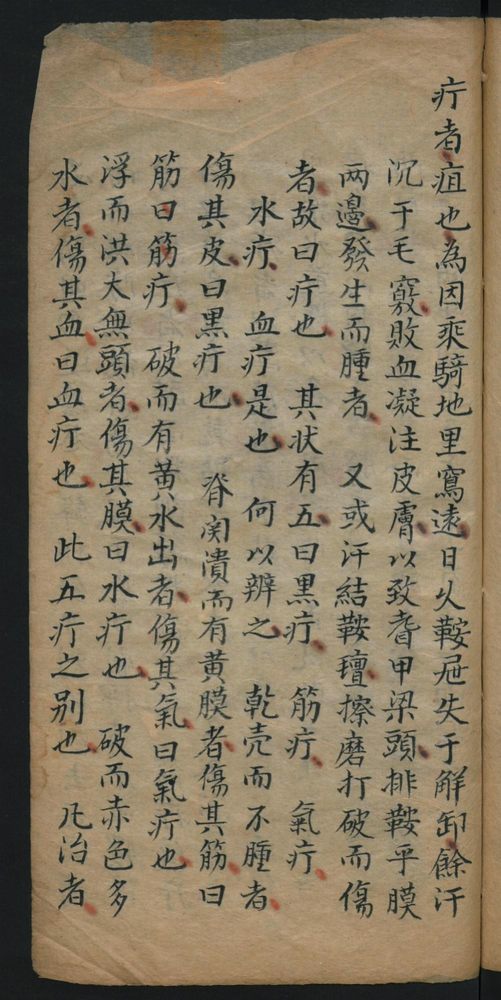 疔者疽也為因乘騎地里窵遠日久鞍屉失于解卸餘汗
沉于毛竅敗血凝注皮膚以致脊甲梁頭排鞍平膜
两邊發生而腫者 又或汗結鞍𤮜擦磨打破而傷
者故曰疔也 其状有五曰黒疔 筋疔 氣疔
水疔 血疔是也 何以辨之 乾壳而不腫者
傷其皮曰黒疔也 脊闵潰而有黄膜者傷其筋曰
筋曰筋疔 破而有黄水出者傷其氣曰氣疔也
浮而洪大無頭者傷其膜曰水疔也 破而赤色多
水者傷其血曰血疔也 此五疔之别也 凡治者